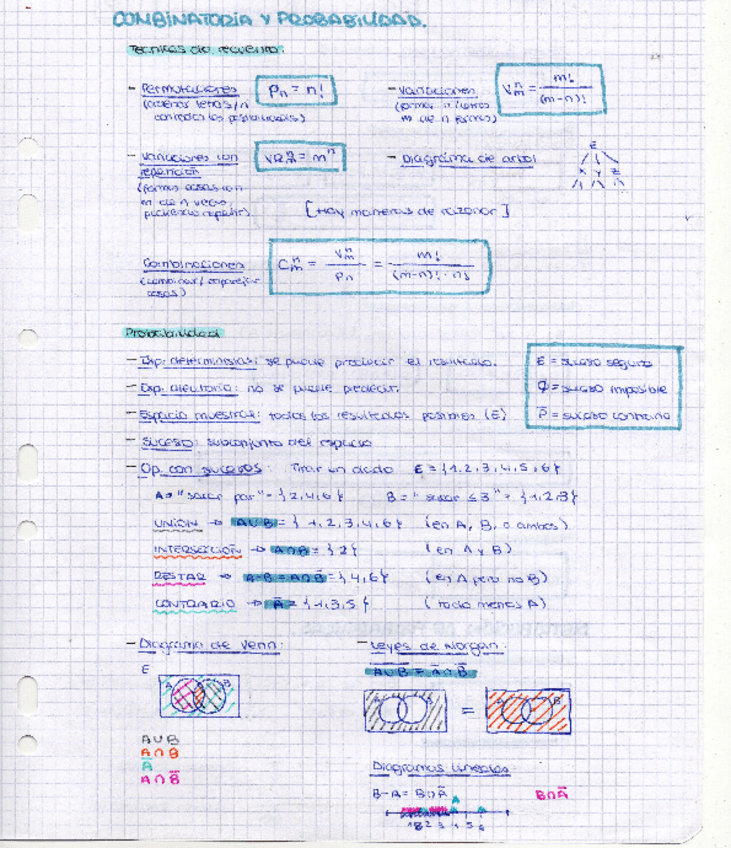 COMBINATORIA Y PROBABILIDAD.
Técnicas de recuento.
- Permutaciones Pn = n!
(ordenar letras/n
con todas las posibilidades)
- Variaciones V_m^n = m! / (m-n)!
(formar n
m de n formas)
- Variaciones con VR_m^n = m^n
repetición
(formar cosas con
m de n veces,
pudiendo repetir)
- Diagrama de arbol
E
X Y Z
[Hay maneras de razonar]
Combinaciones C_m^n = V_m^n / Pn = m! / (m-n)! · n!
(combinar/emparejar
cosas)
Probabilidad
- Exp. deterministas: se puede predecir el resultado.
- Exp. aleatoria: no se puede predecir.
- Espacio muestral: todos los resultados posibles (E)
- Suceso: subconjunto del espacio
E = suceso seguro
Ø = suceso imposible
P̅ = suceso contrario
- Op. con sucesos: Tirar un dado E = {1,2,3,4,5,6}
A = "sacar par" = {2,4,6} B = "sacar ≤3" = {1,2,3}
UNION → A∪B = {1,2,3,4,6} (en A, B, o ambos)
INTERSECCIÓN → A∩B = {2} (en A y B)
RESTAR → A-B = A∩B̅ = {4,6} (en A pero no B)
CONTRARIO → A̅ = {1,3,5} (todo menos A)
- Diagrama de Venn:
E
A B
A∪B
A∩B
A̅
A∩B̅
- Leyes de Morgan:
A∪B̅ = A̅∩B̅
=
Diagramas lineales
B-A = B∩A̅
A
B∩A̅
1 2 3 4 5 6
B